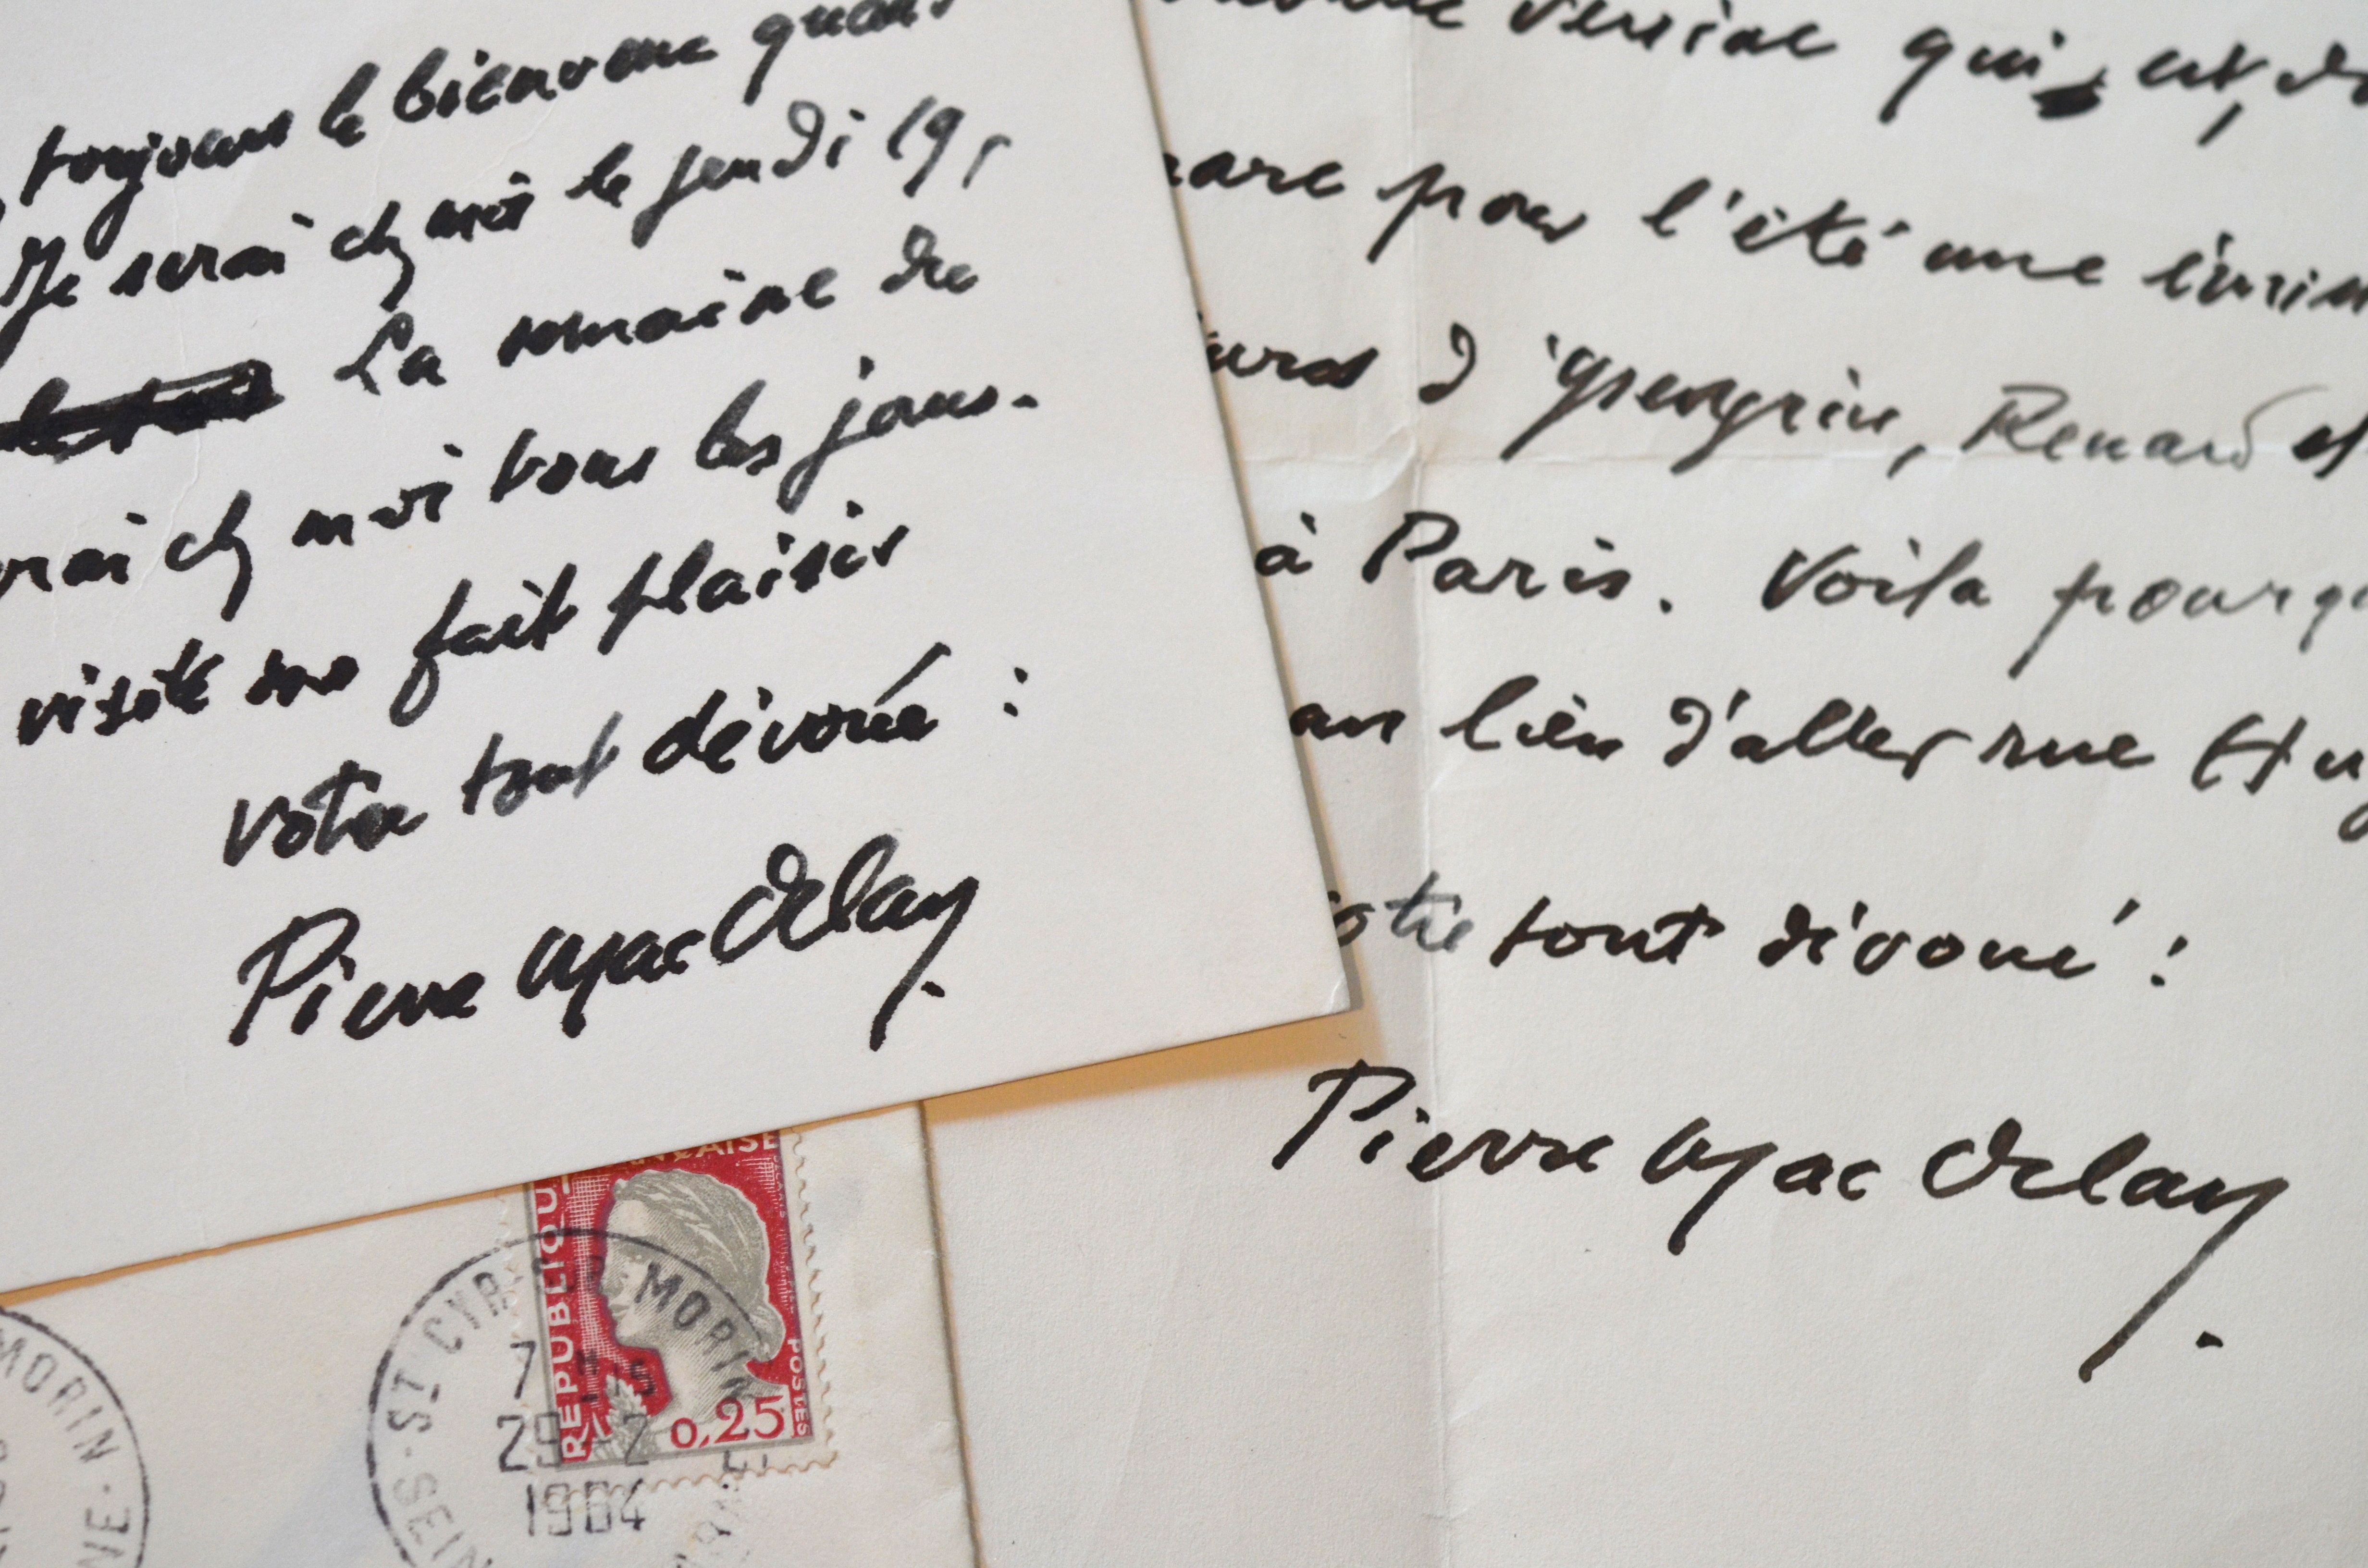 toujours le bienvenu quand
Je serai chez moi le jeudi 19,
La semaine du
rai chez moi tous les jours.
visite me fait plaisir
votre tout dévoué :
Pierre Mac Orlan.
qui est, d
pour l'été une
Renard et
à Paris. Voilà pourq
au lieu d'aller rue Hu
otre tout dévoué :
Pierre Mac Orlan.
RÉPUBLIQUE
ANÇAISE
POSTES
0,25
ST CYR SUR MORIN
7 H 15
29 - 2
1964
SEIN
MORIN
NE